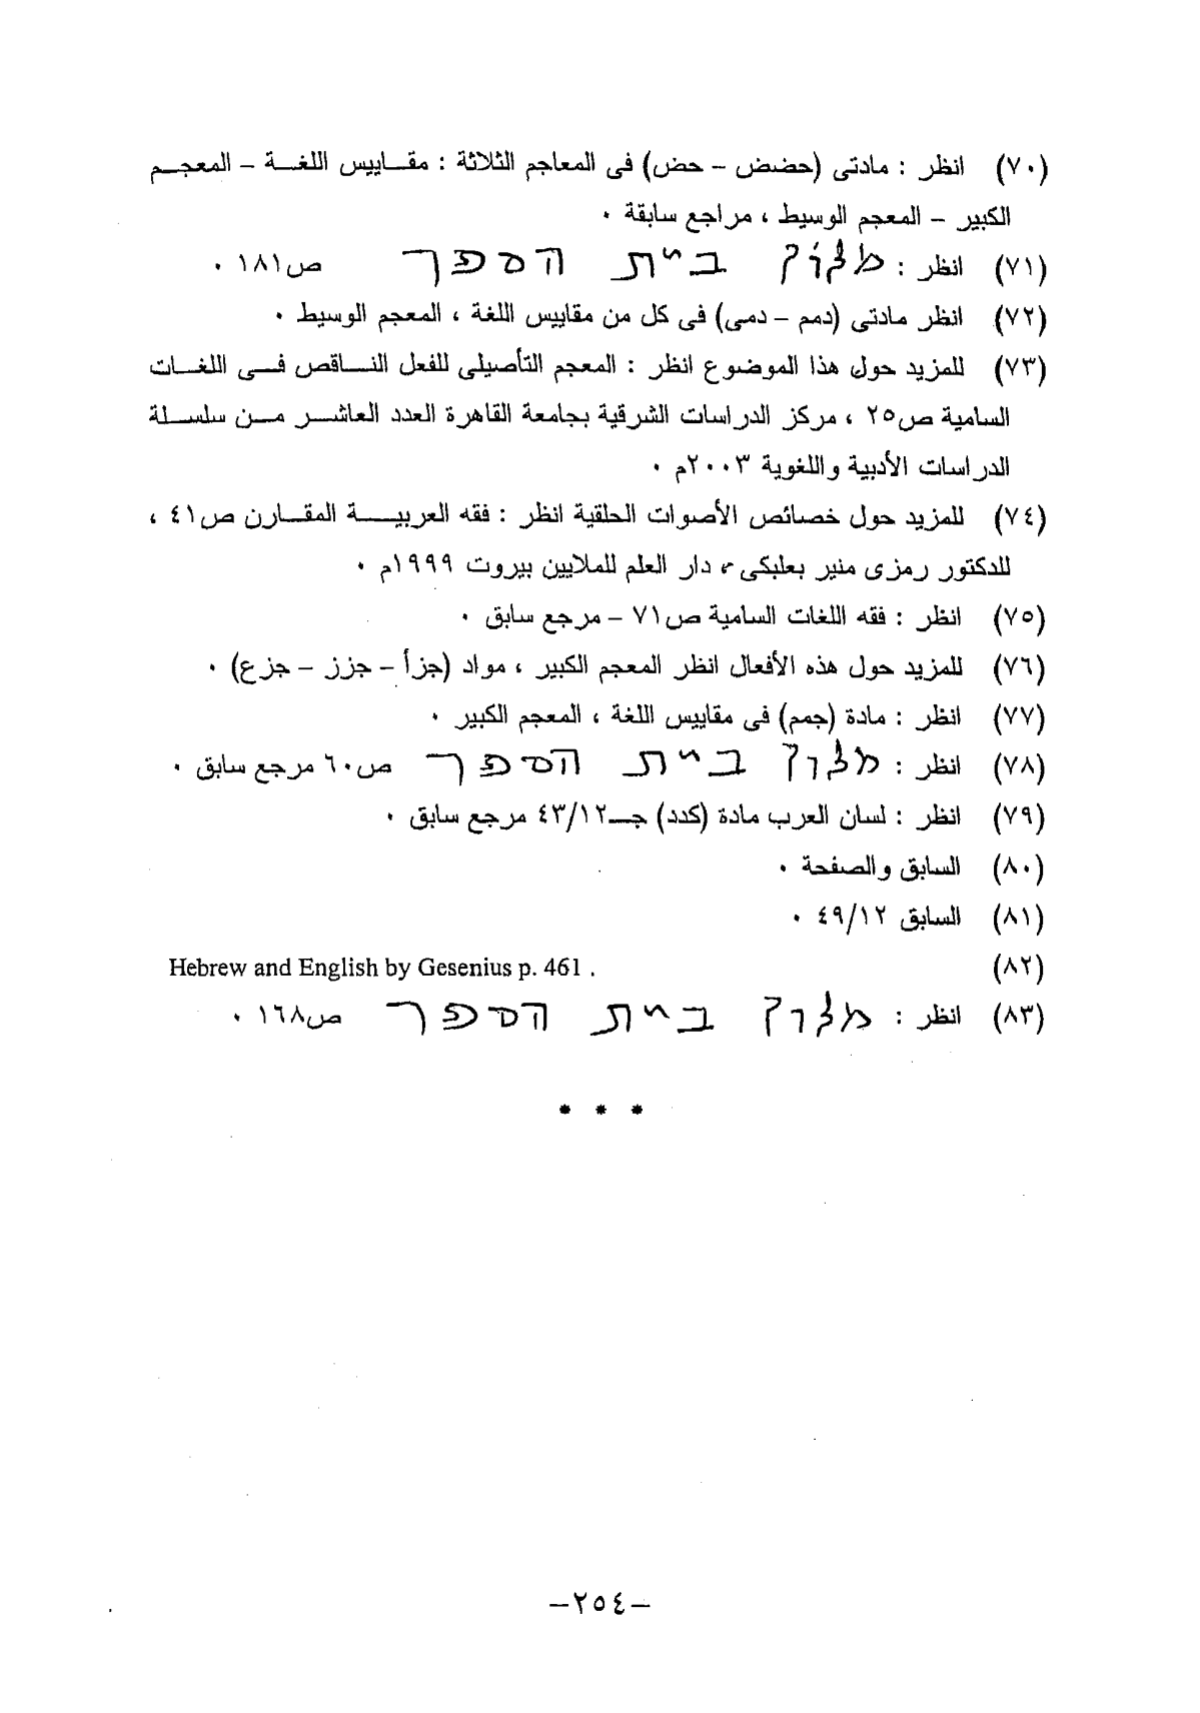 (٧٠) انظر : مادتى (حضض – حض) فى المعاجم الثلاثة : مقـــاييس اللغـــة – المعجـــم
الكبير – المعجم الوسيط ، مراجع سابقة ٠
(٧١) انظر : מלון בית הספר ص١٨١ ٠
(٧٢) انظر مادتى (دمم – دمى) فى كل من مقاييس اللغة ، المعجم الوسيط ٠
(٧٣) للمزيد حول هذا الموضوع انظر : المعجم التأصيلى للفعل النـــاقص فـــى اللغـــات
السامية ص٢٥ ، مركز الدراسات الشرقية بجامعة القاهرة العدد العاشـــر مـــن سلســـلة
الدراسات الأدبية واللغوية ٢٠٠٣م ٠
(٧٤) للمزيد حول خصائص الأصوات الحلقية انظر : فقه العربيـــة المقـــارن ص٤١ ،
للدكتور رمزى منير بعلبكى ، دار العلم للملايين بيروت ١٩٩٩م ٠
(٧٥) انظر : فقه اللغات السامية ص٧١ – مرجع سابق ٠
(٧٦) للمزيد حول هذه الأفعال انظر المعجم الكبير ، مواد (جزأ – جزز – جزع) ٠
(٧٧) انظر : مادة (جمم) فى مقاييس اللغة ، المعجم الكبير ٠
(٧٨) انظر : מלון בית הספר ص٦٠ مرجع سابق ٠
(٧٩) انظر : لسان العرب مادة (كدد) جـــ٤٣/١٢ مرجع سابق ٠
(٨٠) السابق والصفحة ٠
(٨١) السابق ٤٩/١٢ ٠
(٨٢) Hebrew and English by Gesenius p. 461 .
(٨٣) انظر : מלון בית הספר ص١٦٨ ٠
* * *
–٢٥٤–